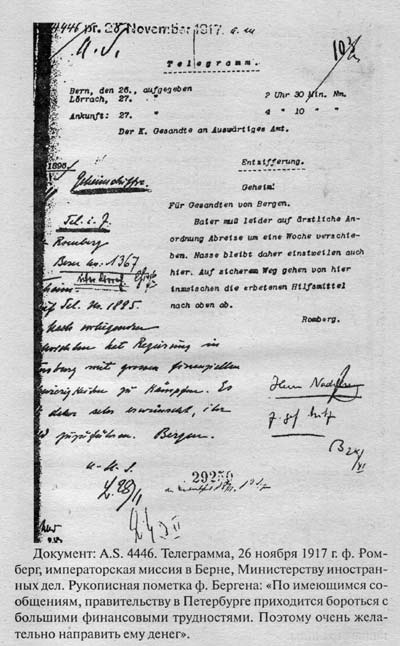 4446 pr. 28 November 1917. a.m
A.S.
Telegramm.
Bern, den 26., aufgegeben
Lörrach, 27. " 2 Uhr 30 Min. Nm.
Ankunft: 27. " 4 " 10 " "
Der K. Gesandte an Auswärtiges Amt.
1895
Entzifferung.
Geheim!
Für Gesandten von Bergen.
Baier muß leider auf ärztliche An-
ordnung Abreise um eine Woche verschie-
ben. Nasse bleibt daher einstweilen auch
hier. Auf sicherem Weg gehen von hier
inzwischen die erbetenen Hilfsmittel
nach oben ab.
Romberg.
Geheimchiffre
Tel. i. Z.
Romberg
Bern No. 1367
Tel. Nr. 1895.
Nach vorliegenden
hat Regierung in
mit grossen finanziellen
zu kämpfen. Es
daher sehr erwünscht, ihr
zuzuführen. Bergen.
Herrn
29250
Документ: A.S. 4446. Телеграмма, 26 ноября 1917 г. ф. Ром-
берг, императорская миссия в Берне, Министерству иностран-
ных дел. Рукописная пометка ф. Бергена: «По имеющимся со-
общениям, правительству в Петербурге приходится бороться с
большими финансовыми трудностями. Поэтому очень жела-
тельно направить ему денег».